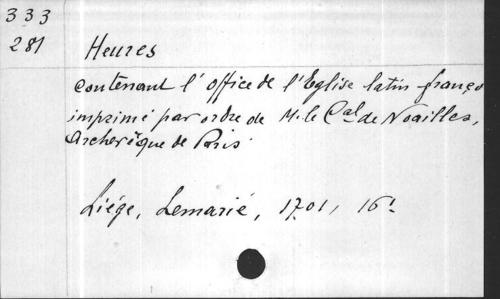 333
281
Heures
contenant l'office de l'Eglise latin-franço
imprimé par ordre de M. le Cal de Noailles,
Archevêque de Paris.
Liége, Lemarié, 1701, 16!